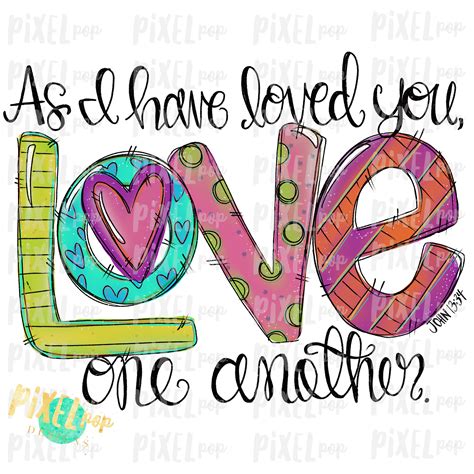 As I have loved you,
LOVE
JOHN 13:34
one another.
PIXEL pop
PRINTS